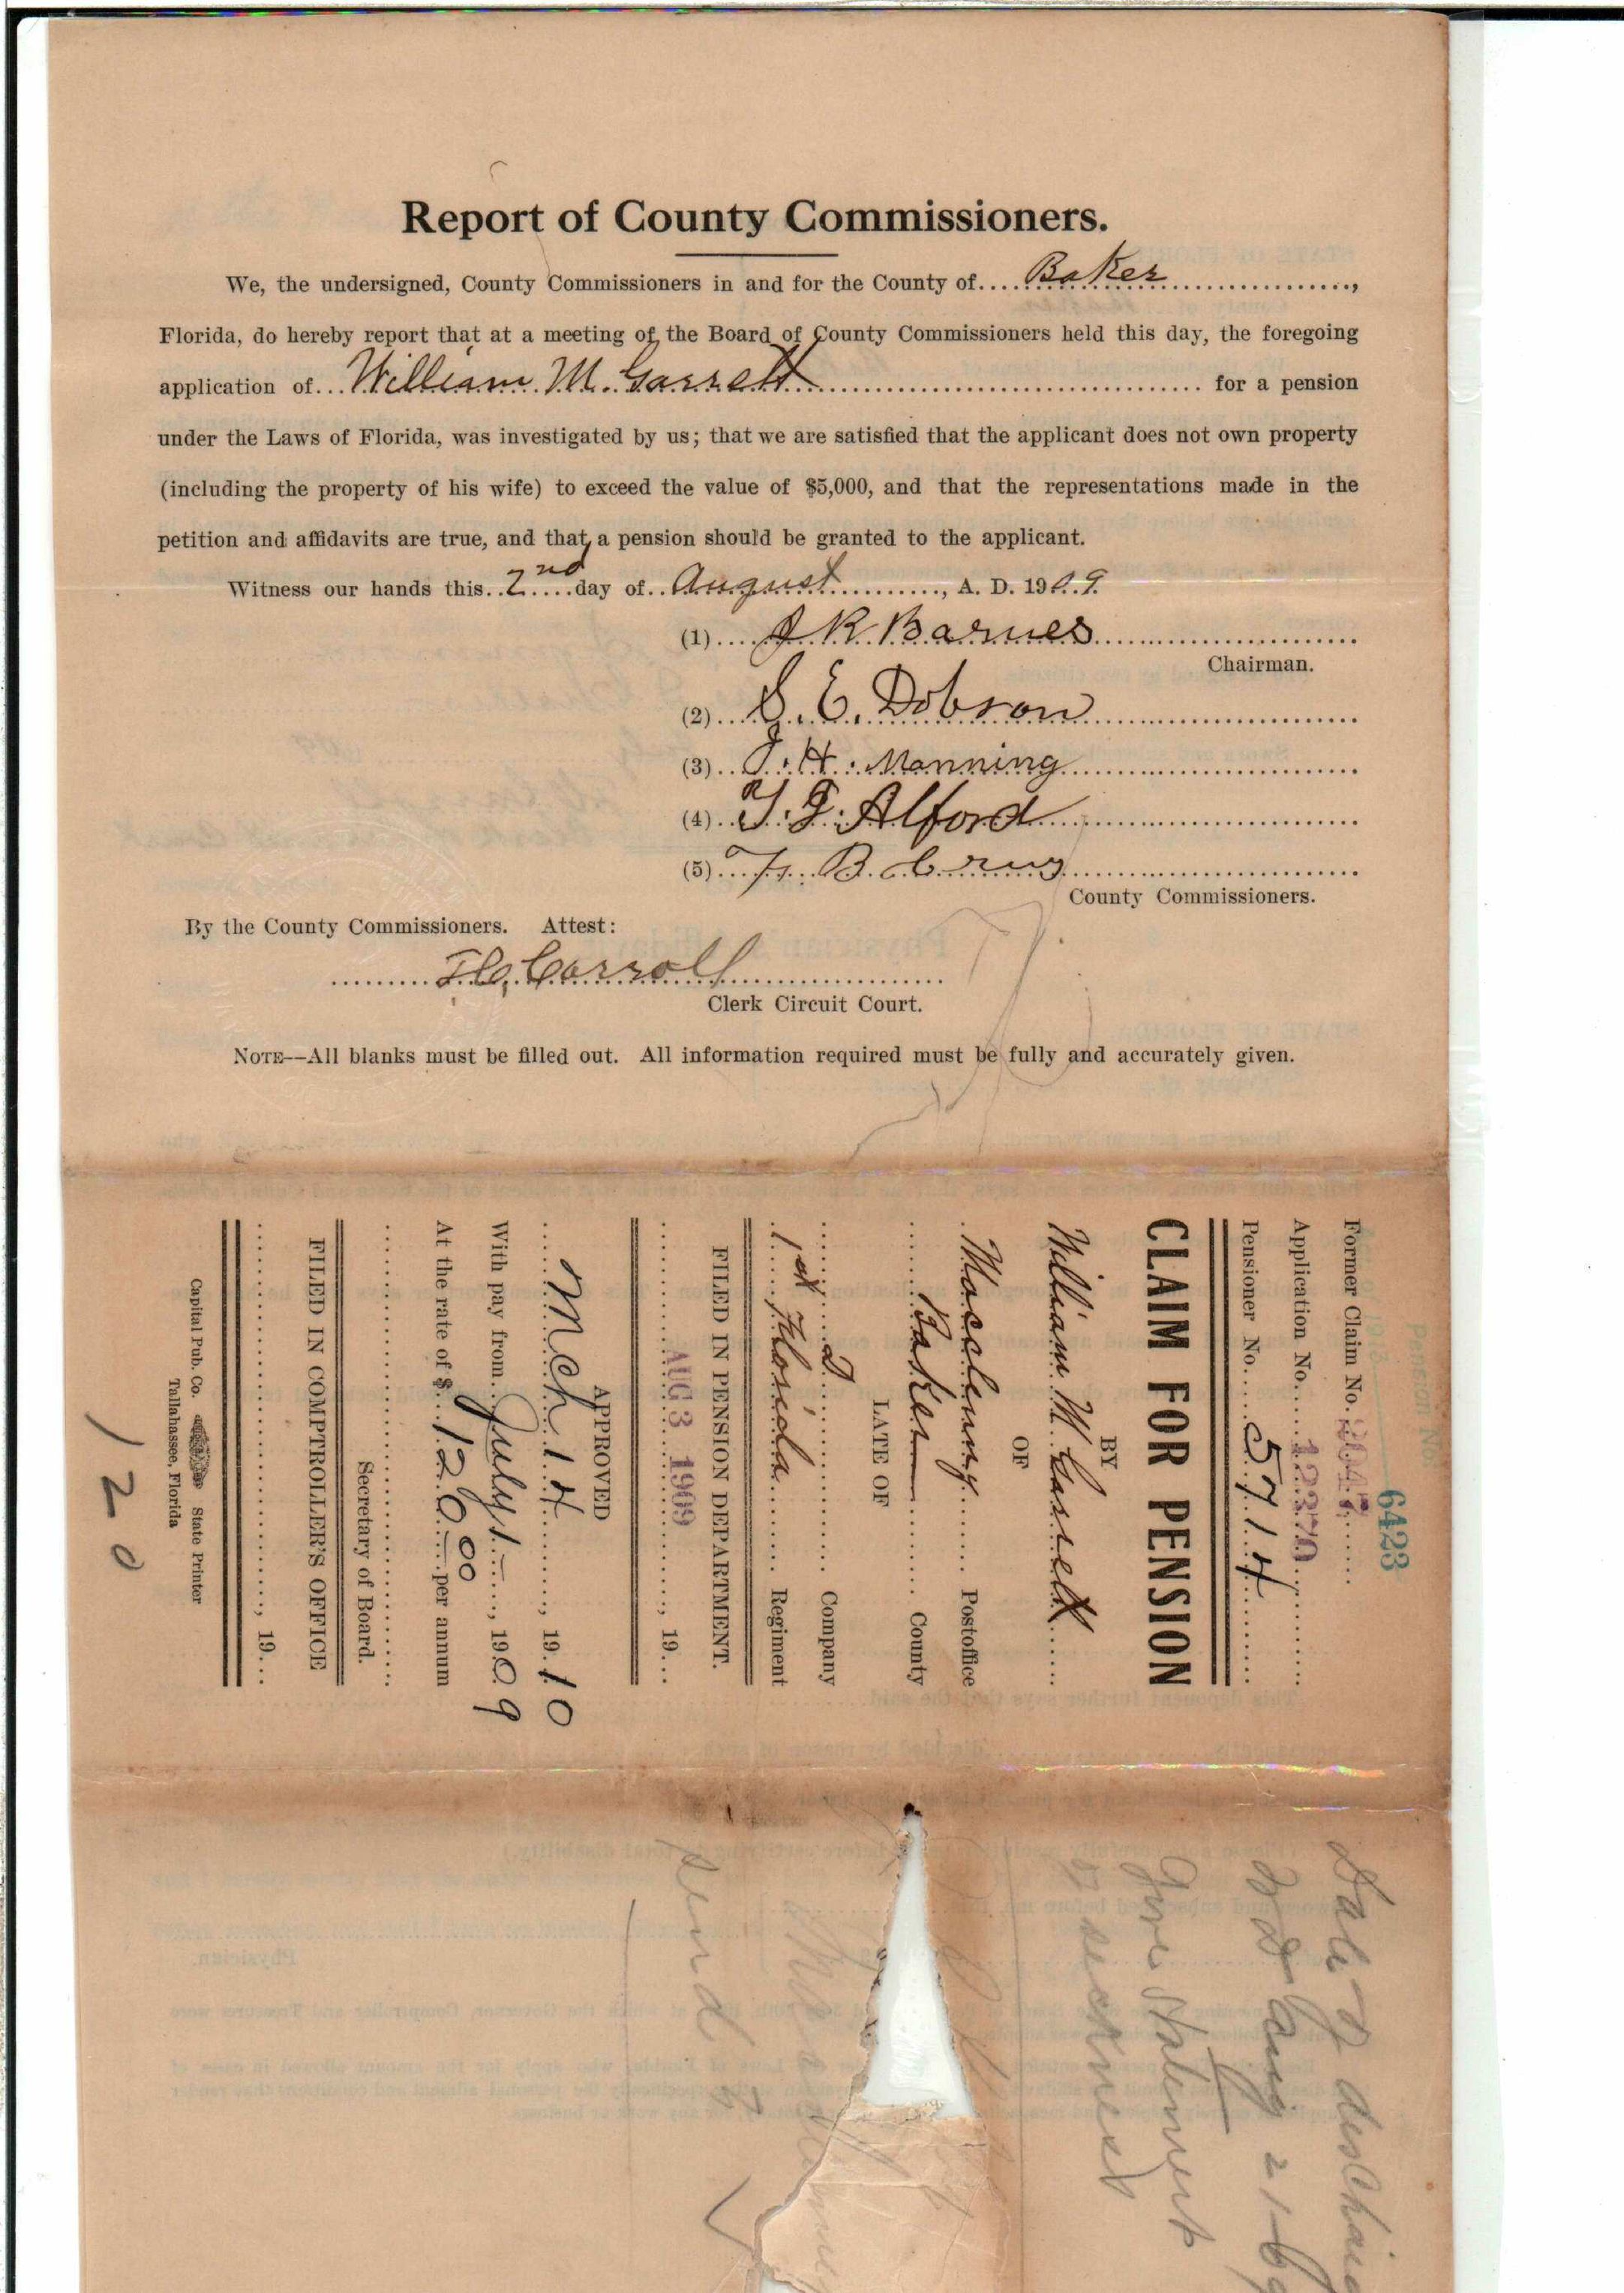 Report of County Commissioners.
We, the undersigned, County Commissioners in and for the County of....Baker....................,
Florida, do hereby report that at a meeting of the Board of County Commissioners held this day, the foregoing
application of...William M. Garrett.................................... for a pension
under the Laws of Florida, was investigated by us; that we are satisfied that the applicant does not own property
(including the property of his wife) to exceed the value of $5,000, and that the representations made in the
petition and affidavits are true, and that a pension should be granted to the applicant.
Witness our hands this..2nd....day of..August..........., A. D. 1909.
(1)....J R Barnes..........................
Chairman.
(2)....S. E. Dobson..........................
(3)...J. H. Manning..........................
(4)...T. J. Alford..........................
(5)... B. ..........................
County Commissioners.
By the County Commissioners. Attest:
..........Carroll....................
Clerk Circuit Court.
NOTE—All blanks must be filled out. All information required must be fully and accurately given.
6423
Former Claim No.
Application No....12370..........
Pensioner No.....5714........
CLAIM FOR PENSION
BY
William M. Garrett......
OF
Macclenny....... Postoffice
.......Baker....... County
LATE OF
........D............ Company
.1st Florida....... Regiment
FILED IN PENSION DEPARTMENT.
AUG 3 1909, 19...
APPROVED
....Mch 14......., 19.10
With pay from..July 1-...., 1909
At the rate of $..120.00..per annum
Secretary of Board.
FILED IN COMPTROLLER'S OFFICE
................................., 19...
Capital Pub. Co. State Printer
Tallahassee, Florida
120
Pension No.
Date of
Give Statement